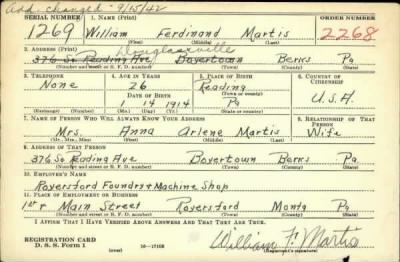 Add. changed - 9/15/42
SERIAL NUMBER 1. NAME (Print) ORDER NUMBER
1269 William Ferdinand Martis 2268
(First) (Middle) (Last)
2. ADDRESS (Print) Douglassville
376 So Reading Ave, Boyertown Berks Pa
(Number and street or R. F. D. number) (Town) (County) (State)
3. TELEPHONE 4. AGE IN YEARS 5. PLACE OF BIRTH 6. COUNTRY OF CITIZENSHIP
None 26 Reading
(Town or county)
DATE OF BIRTH
1 14 1914 Pa U.S.A.
(Mo.) (Day) (Yr.) (State or country)
7. NAME OF PERSON WHO WILL ALWAYS KNOW YOUR ADDRESS 8. RELATIONSHIP OF THAT PERSON
Mrs. Anna Arlene Martis Wife
(Mr., Mrs., Miss) (First) (Middle) (Last)
9. ADDRESS OF THAT PERSON
376 So Reading Ave Boyertown Berks Pa
(Number and street or R. F. D. number) (Town) (County) (State)
10. EMPLOYER'S NAME
Royersford Foundry & Machine Shop
11. PLACE OF EMPLOYMENT OR BUSINESS
1st & Main Street Royersford Montg Pa
(Number and street or R. F. D. number) (Town) (County) (State)
I AFFIRM THAT I HAVE VERIFIED ABOVE ANSWERS AND THAT THEY ARE TRUE.
REGISTRATION CARD
D. S. S. Form 1 (over) 16-17105
William F. Martis
(Registrant's signature)